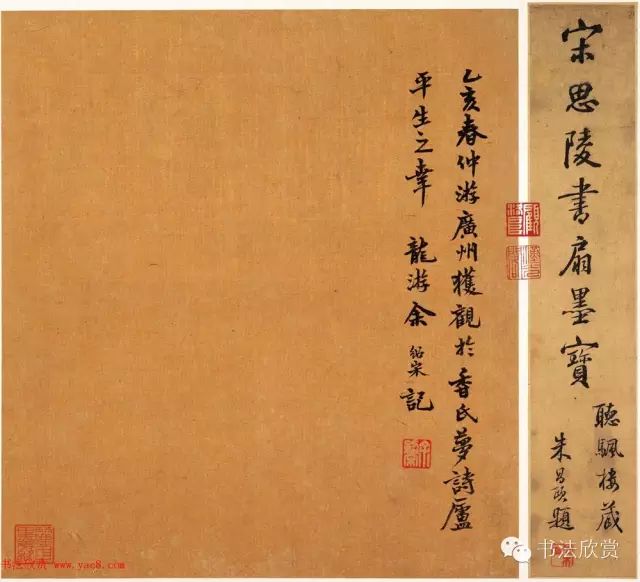 宋思陵書扇墨寶
聽颿樓藏
朱昌頤題
乙亥春仲游廣州獲觀於香氏夢詩廬
平生之幸 龍游余紹宋記
书法欣赏
www.yac8.com